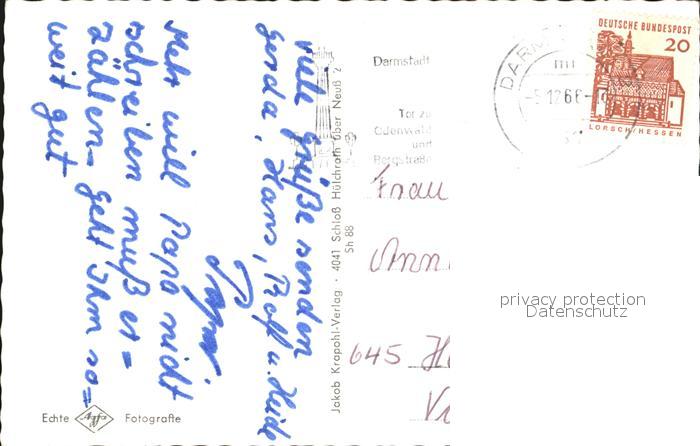 Viele Grüße senden
Gerda, Hans, Rolf u. Heide
Papa,
Mehr will Papa nicht
schreiben muß er=
zählen= geht Ihm so=
weit gut
Echte Agfa Fotografie
Jakob Krapohl-Verlag · 4041 Schloß Hülchrath über Neuß 2
Sh 88
Darmstadt
Tor zu
Odenwald
und
Bergstraße
DARM
-5.12.66-
DEUTSCHE BUNDESPOST
20
LORSCH/HESSEN
Frau
Ann
645 Ha
privacy protection
Datenschutz